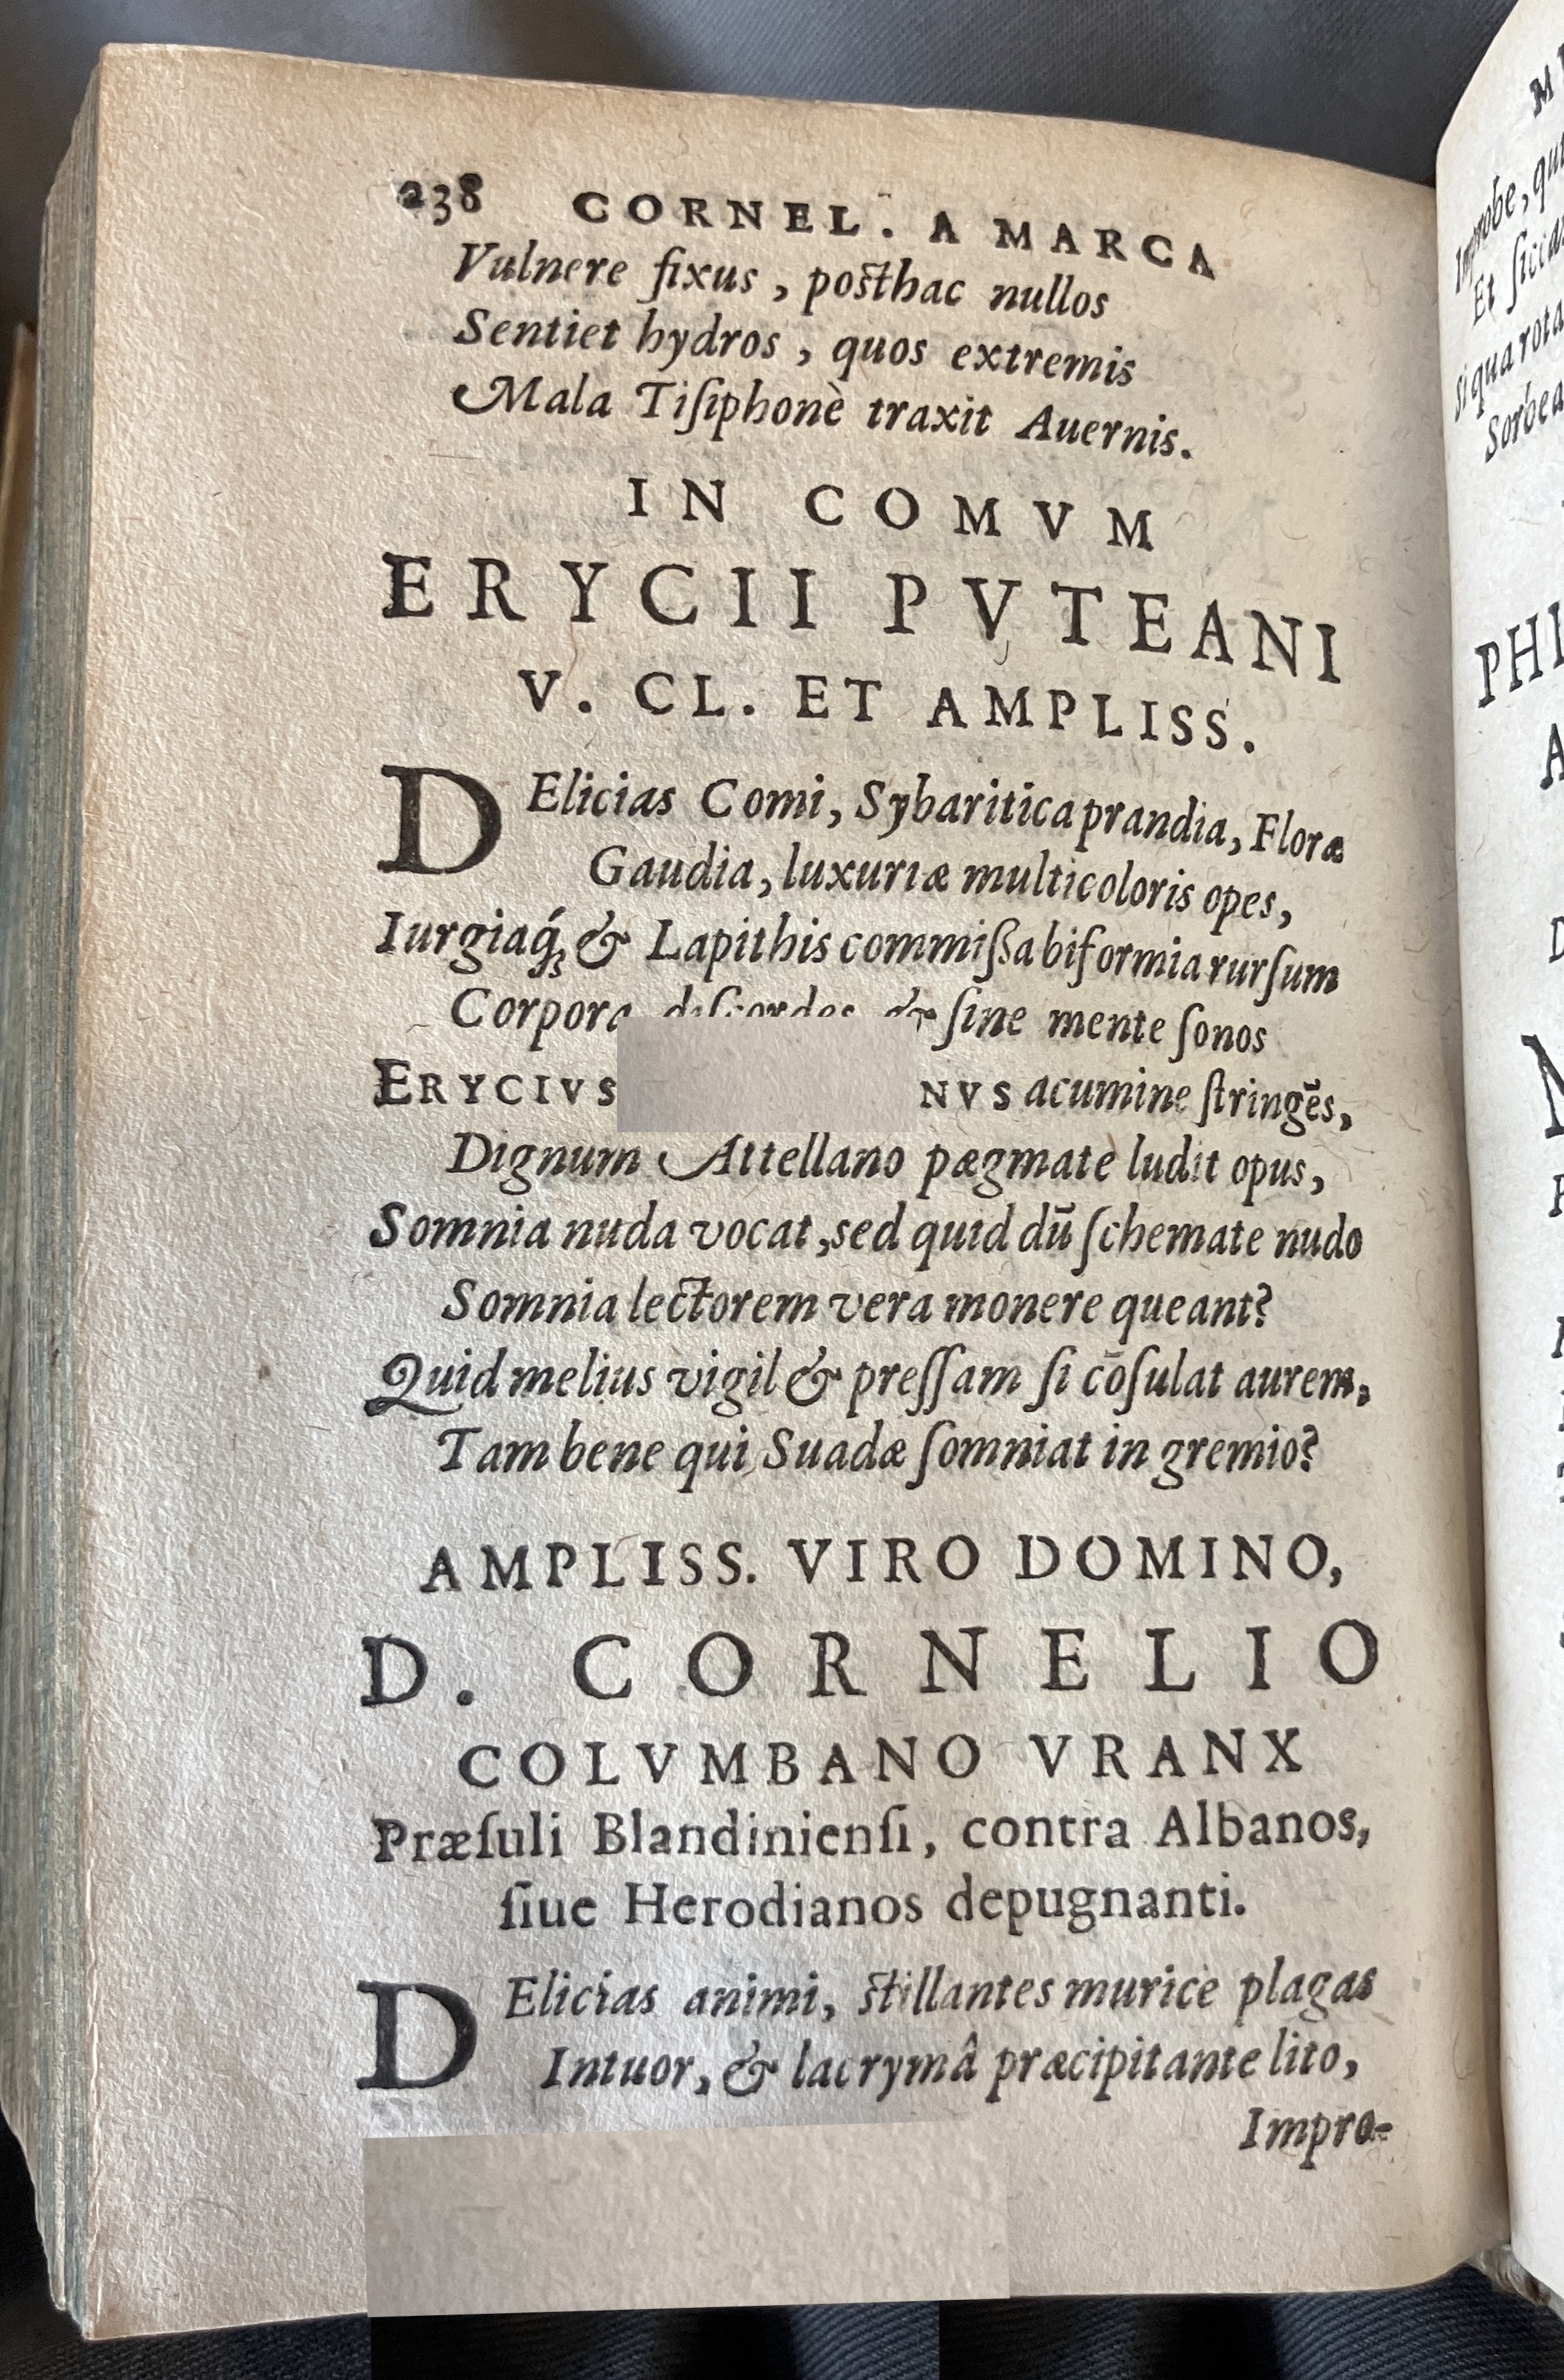 238 CORNEL. A MARCA
Vulnere fixus, posthac nullos
Sentiet hydros, quos extremis
Mala Tiſiphonè traxit Auernis.
IN COMVM
ERYCII PVTEANI
V. CL. ET AMPLISS.
DElicias Comi, Sybaritica prandia, Floræ
Gaudia, luxuriæ multicoloris opes,
Iurgiaq́ꝫ & Lapithis commiſſa biformia rurſum
Corpora diſcordes & ſine mente ſonos
ERYCIVS NVS acumine ſtringēs,
Dignum Attellano pægmate ludit opus,
Somnia nuda vocat, sed quid dū ſchemate nudo
Somnia lectorem vera monere queant?
Quid melius vigil & preſſam ſi cōſulat aurem,
Tam bene qui Suadæ ſomniat in gremio?
AMPLISS. VIRO DOMINO,
D. CORNELIO
COLVMBANO VRANX
Præſuli Blandinienſi, contra Albanos,
ſiue Herodianos depugnanti.
DElicias animi, ſtillantes murice plagas
Intuor, & lacrymâ præcipitante lito,
Impro-